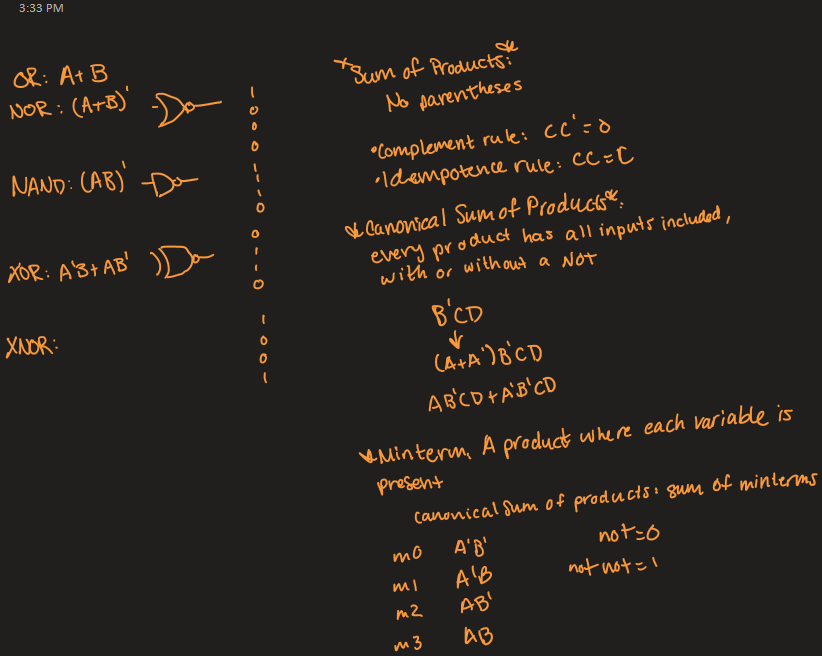 3:33 PM
OR: A+B
NOR: (A+B)'
1
0
0
0
NAND: (AB)'
1
1
1
0
XOR: A'B+AB'
0
1
1
0
XNOR:
1
0
0
1
*Sum of Products*:
No parentheses
•Complement rule: CC'=0
•Idempotence rule: CC=C
*Canonical Sum of Products*:
every product has all inputs included,
with or without a NOT
B'CD
↓
(A+A')B'CD
AB'CD+A'B'CD
*Minterm. A product where each variable is
present
canonical sum of products: sum of minterms
m0 A'B'
m1 A'B
m2 AB'
m3 AB
not=0
not not=1